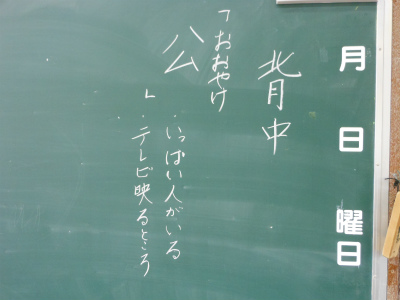 月 日 曜日
背中
「おおやけ
公
」
・いっぱい人がいる
・テレビ映るところ